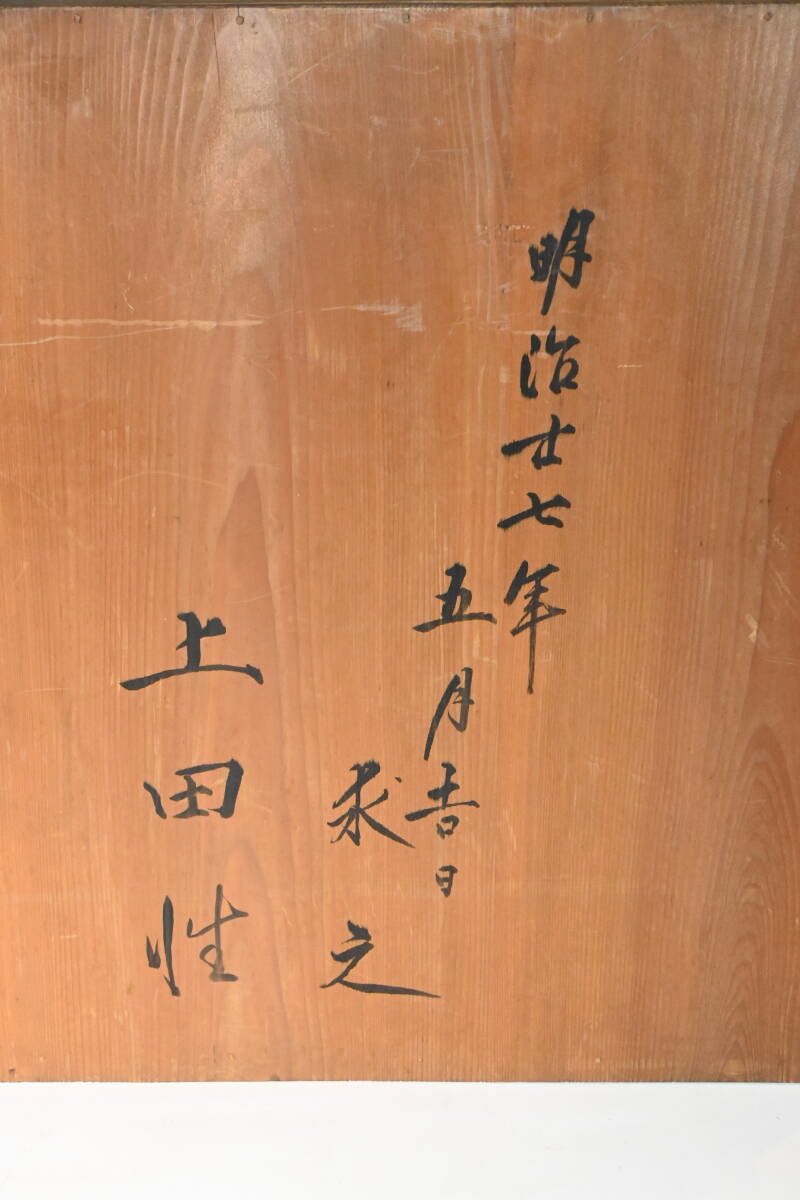 明治十七年
五月吉日
求之
上田性